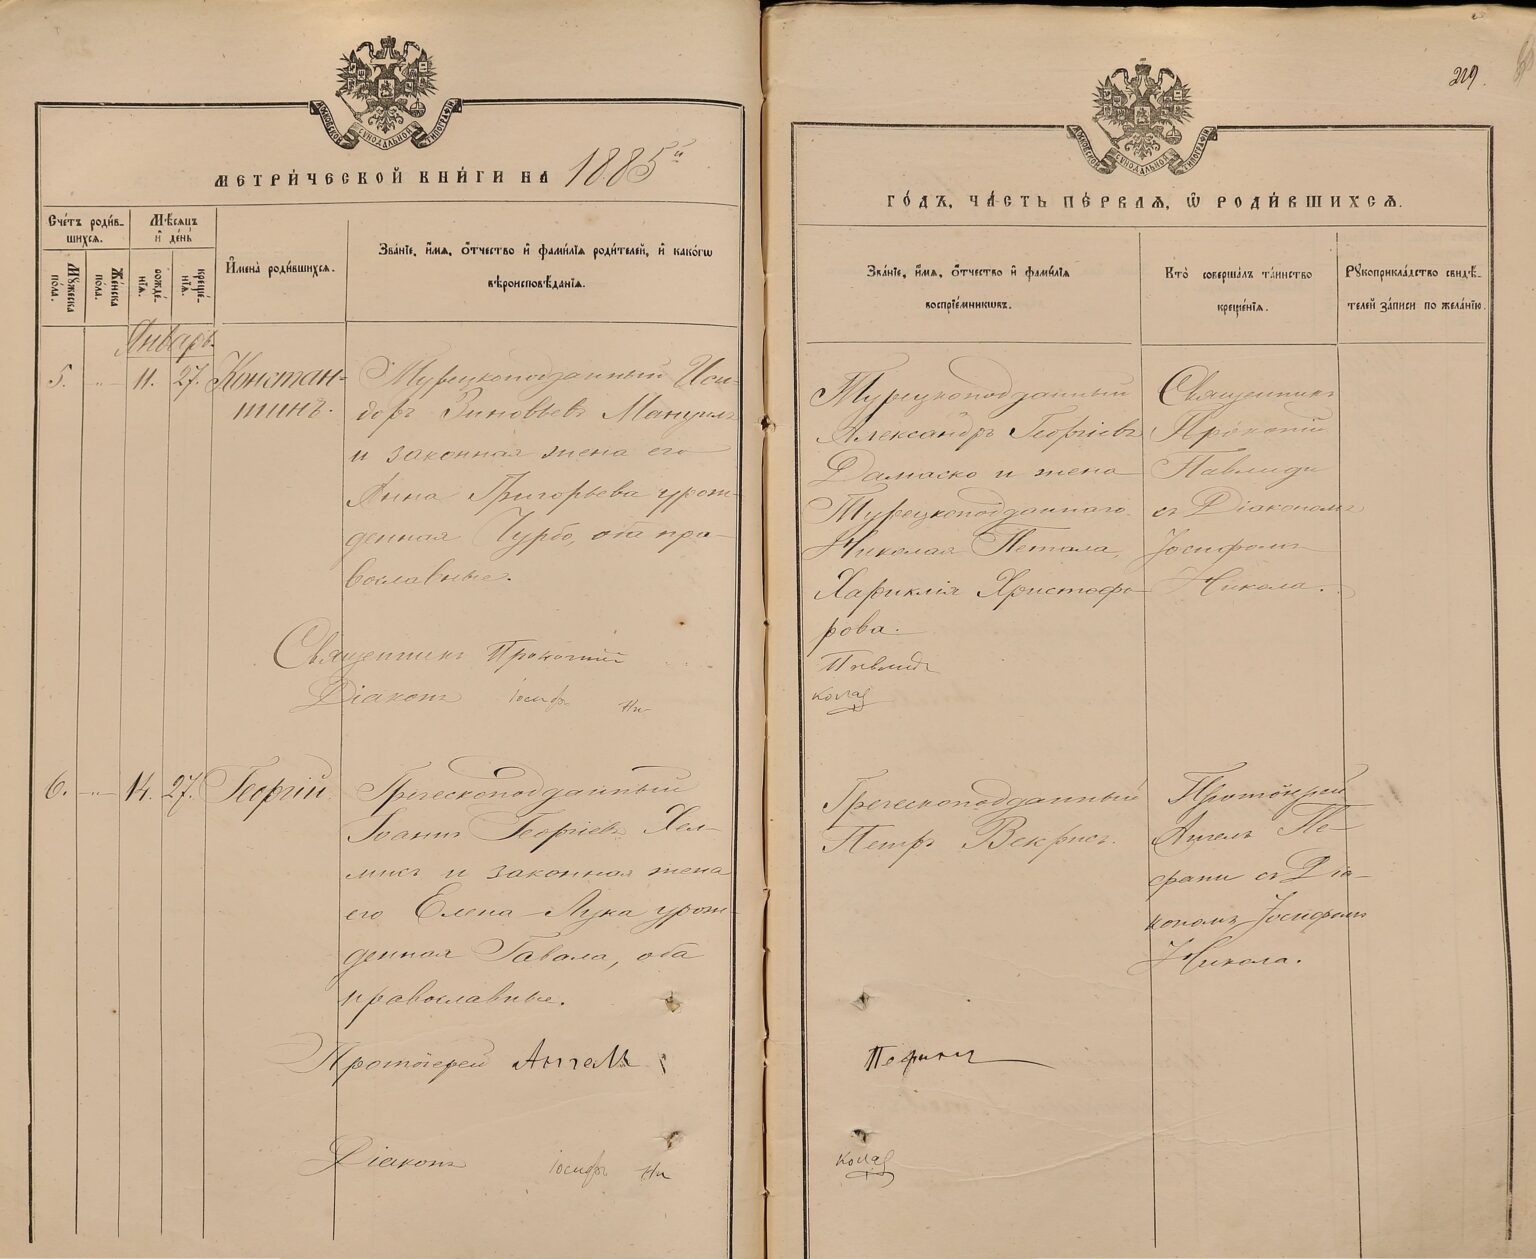 МОСКОВСКОЙ СѴНОДАЛЬНОЙ ТИПОГРАФІИ
МЕТРИ́ЧЕСКОЙ КНИ́ГИ НА 1885й
Сче́тъ роди́в-
шихсѧ.
Мѣ́сѧцъ
и҆ де́нь
Мꙋ́жеска по́ла.
Же́нска по́ла.
рожде́-нїѧ.
креще́-нїѧ.
И҆мена̀ роди́вшихсѧ.
Зва́нїе, и҆́мѧ, ѻ҆́тчество и҆ фами́лїѧ роди́телей, и҆ како́гѡ
вѣроисповѣ́данїѧ.
Январь.
5. -"- 11. 27. Констан-
тинъ.
Турецкоподданный Иси-
доръ Зиновьевъ Мануилъ
и законная жена его
Анна Григорьева урож-
денная Чурбо, оба пра-
вославные.
Священникъ Прокопий
Діаконъ Іосифъ Ни-
6. -"- 14. 27. Георгій.
Греческоподданный
Іоаннъ Георгіевъ Хел-
мисъ и законная жена
его Елена Лука урож-
денная Гавала, оба
православные.
Протоіерей Ангелъ
Діаконъ Іосифъ Ни
219.
МОСКОВСКОЙ СѴНОДАЛЬНОЙ ТИПОГРАФІИ
ГО́ДЪ, ЧА́СТЬ ПЕ́РВАѦ, Ѽ РОДИ́ВШИХСѦ.
Зва́нїе, и҆́мѧ, ѻ҆́тчество и҆ фами́лїѧ
воспрїе́мникѡвъ.
Кто̀ соверша́лъ та́инство
креще́нїѧ.
Рꙋкоприкла́дство свидѣ́-
телей за́писи по жела́нїю.
Турецкоподданный
Александръ Георгіевъ
Дамаско и жена
Турецкоподданного
Николая Петала,
Хариклія Христофо-
рова.
Павлиди
кола
Священникъ
Прокопій
Павлиди
съ Діакономъ
Іосифомъ
Никола.
Греческоподданный
Петръ Векрисъ.
Протоіерей
Ангелъ Пе-
фани съ Діа-
кономъ Іосифомъ
Никола.
Пефани
кола